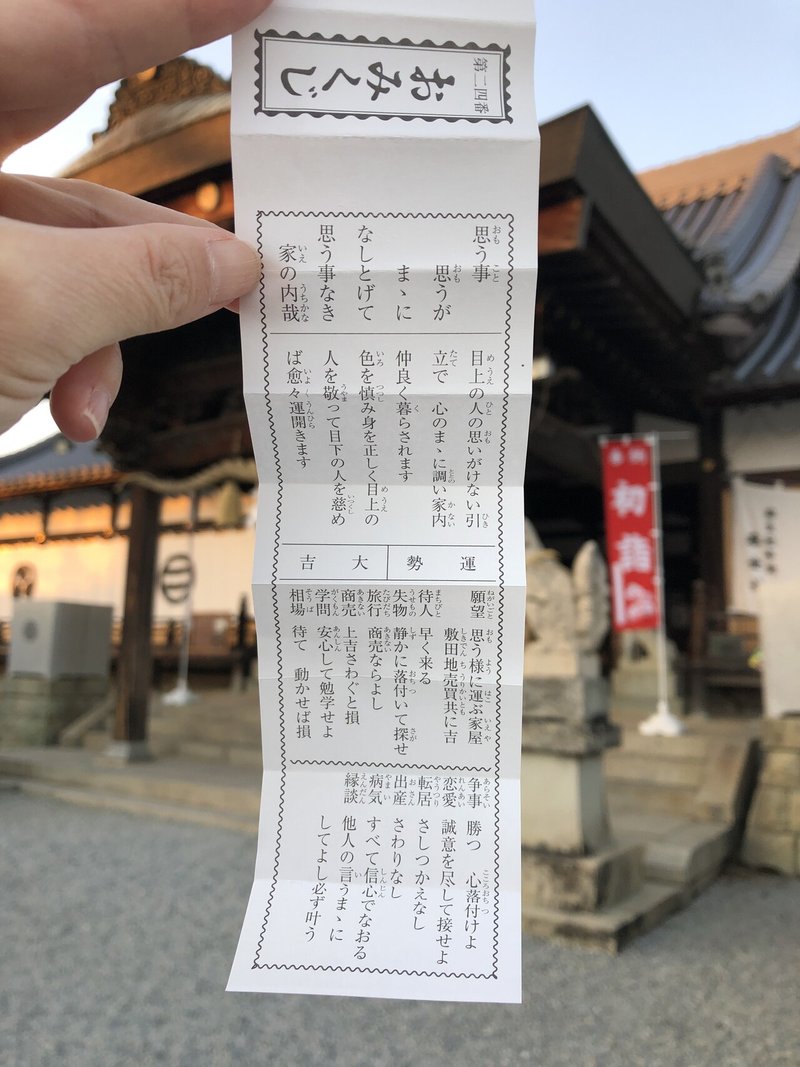 第二四番
おみくじ
思う事
思うが
まゝに
なしとげて
思う事なき
家の内哉
目上の人の思いがけない引
立で 心のまゝに調い家内
仲良く暮らされます
色を慎み身を正しく目上の
人を敬って目下の人を慈め
ば愈々運開きます
運勢
大吉
願望 思う様に運ぶ家屋
敷田地売買共に吉
待人 早く来る
失物 静かに落付いて探せ
旅行 商売ならよし
商売 上吉さわぐと損
学問 安心して勉学せよ
相場 待て 動かせば損
争事 勝つ 心落付けよ
恋愛 誠意を尽して接せよ
転居 さしつかえなし
出産 さわりなし
病気 すべて信心でなおる
縁談 他人の言うまゝに
してよし必ず叶う
初詣